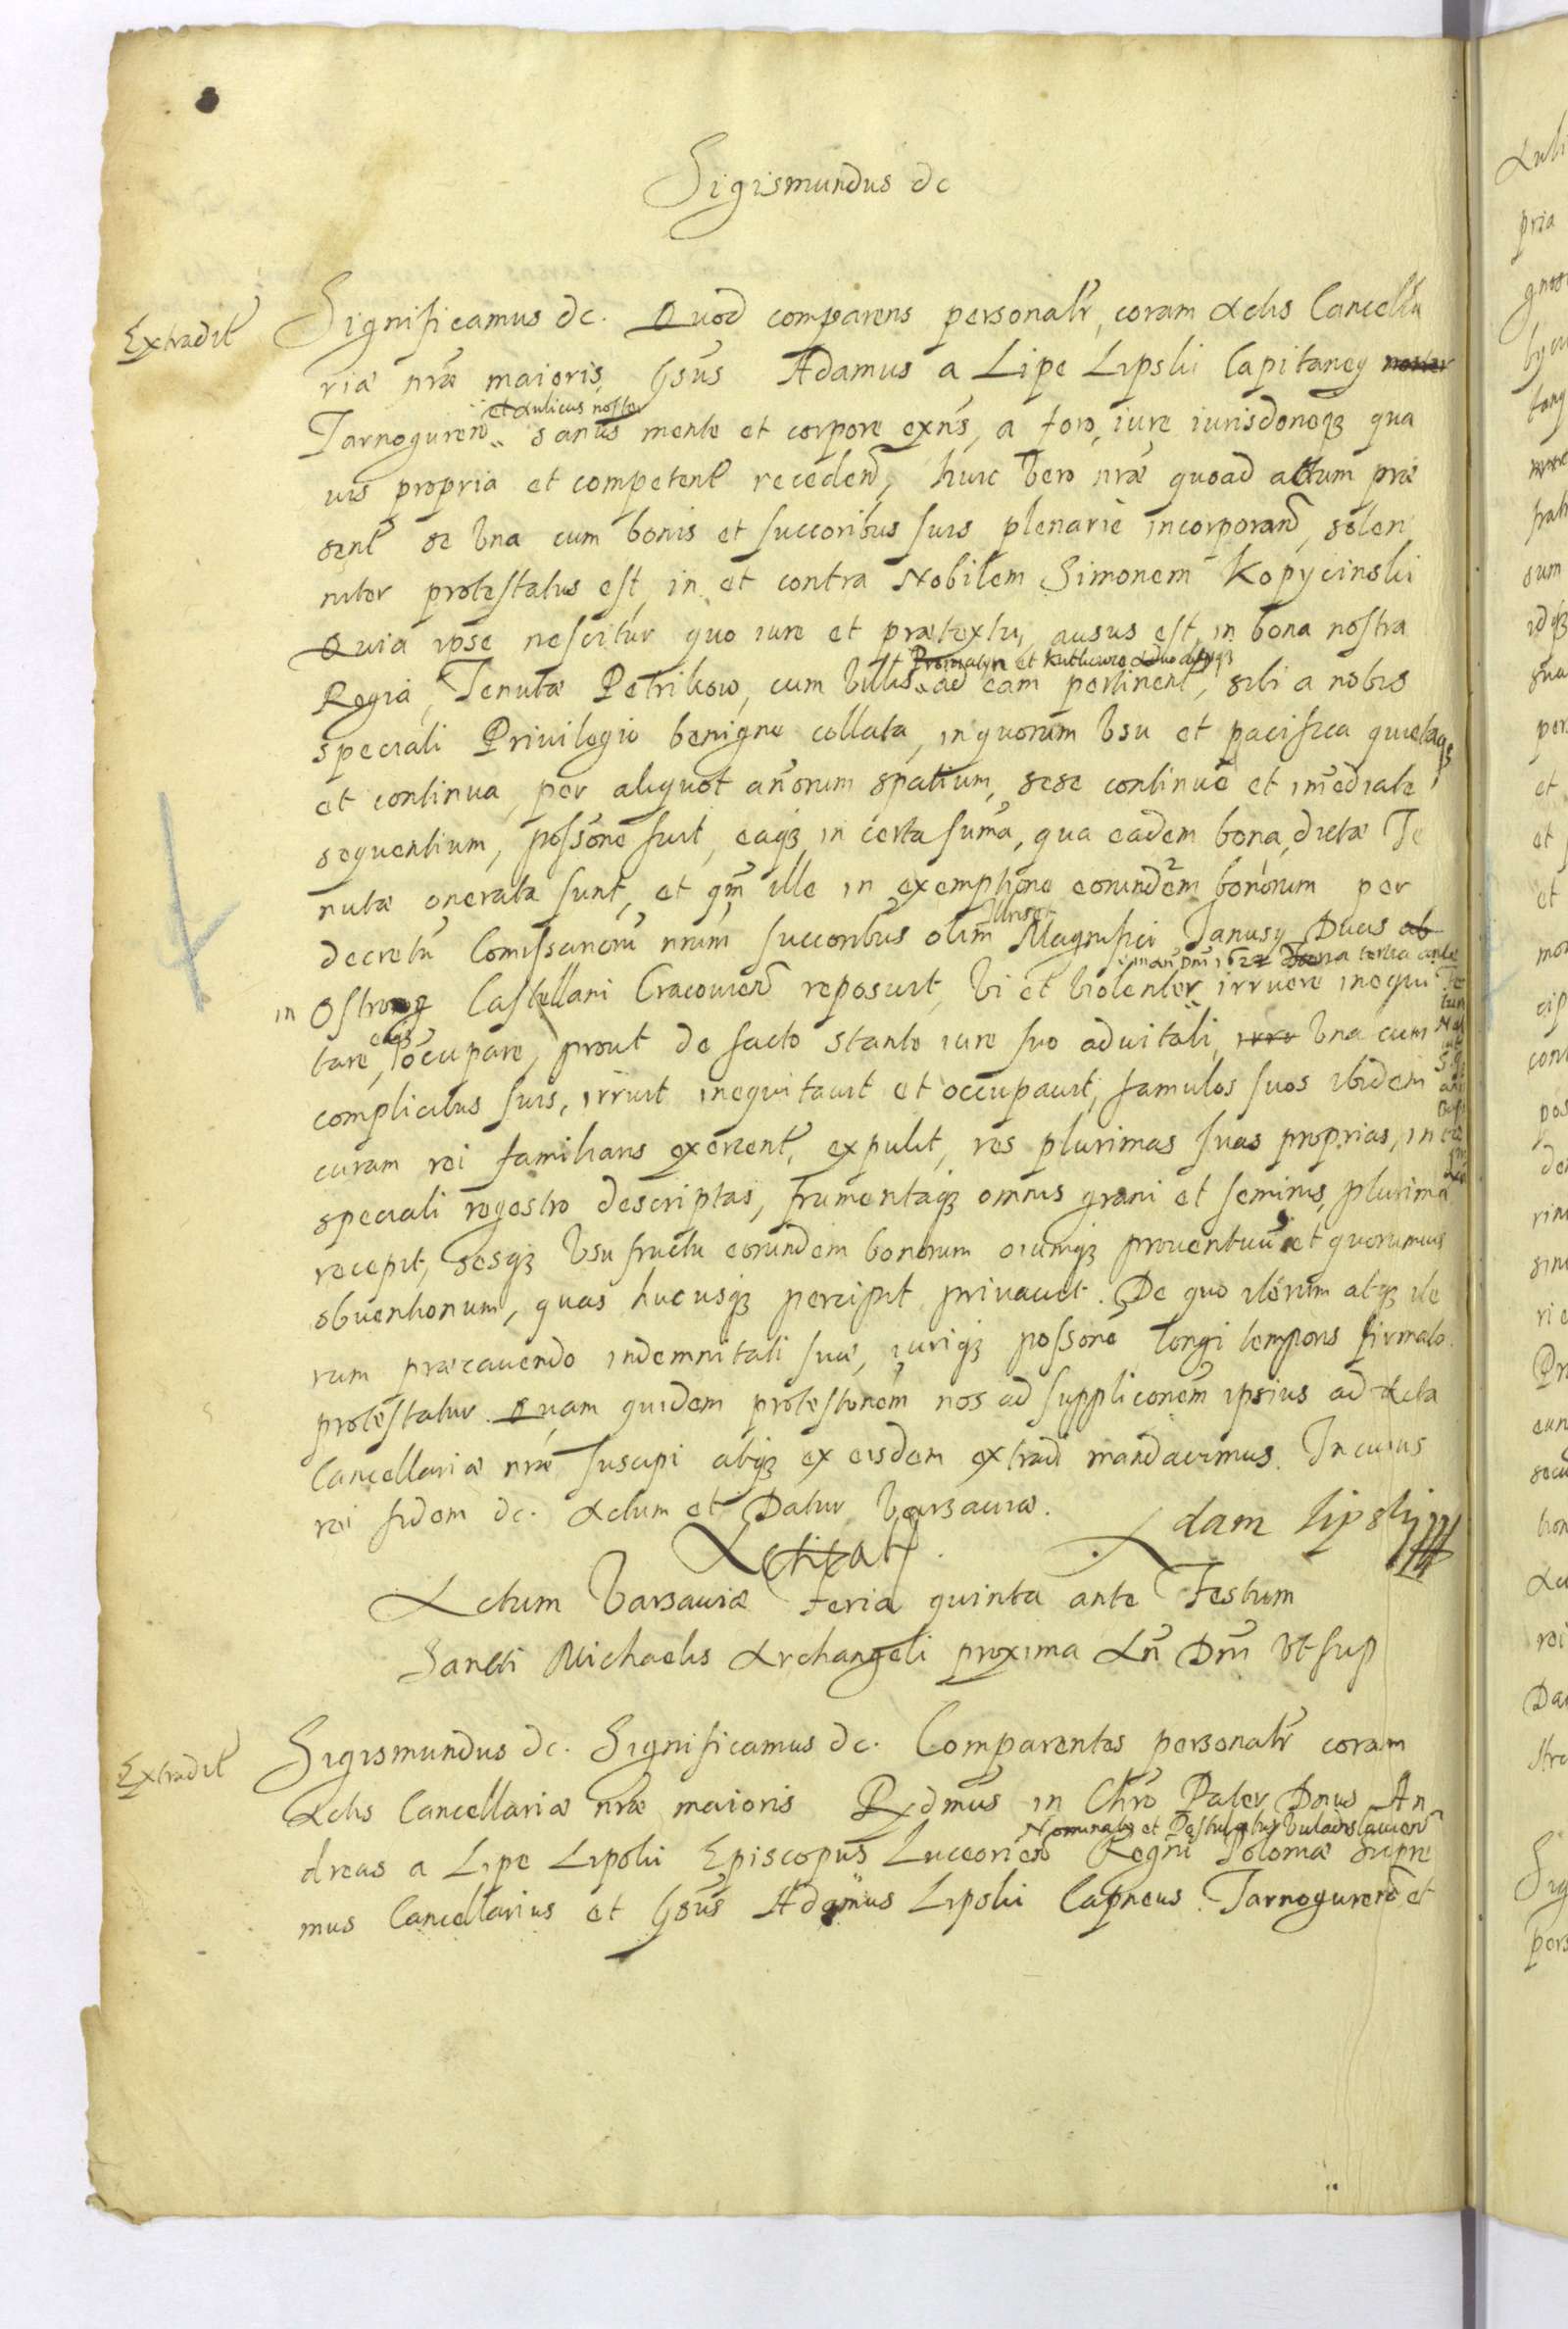 Sigismundus &c
Extradit
Significamus &c. Quod comparens personalr, coram Actis Cancella
riæ nræ maioris, Gsus Adamus a Lipe Lipski Capitaneus noster
et Aulicus noster
Tarnoguren. sanus mente et corpore exns, a foro, iure iurisdoneq₃ qua
vis propria et competent recedend, huic vero nræ quoad actum præ
sent se vna cum bonis et succoribus suis plenarie incorporand, solen
niter protestatus est, in et contra Nobilem Simonem Kopycinski
Quia ipse nescitur quo iure et prætextu, ausus est in bona nostra
et Kutlicwo
Regia, Tenutæ Petrikow, cum villis ad eam pertinent, sibi a nobis
speciali Privilegio benigne collata, in quorum vsu et pacifica quietaq₃
et continua, per aliquot anorum spatium, sese continuè et imediate
sequentium, possone fuit, eaq₃ in certa suma, qua eadem bona, dictæ Te
nutæ onerata sunt, et qm ille in exemptione eorundem bonorum per
Illris et
decretu Comissarioru nrum succoribus olim Magnifici Janusy Ducis ab
in an Dni 162 feria tertia ante
in Ostrog Castellani Cracouien reposuit, vi et violenter irruere inequi
tare, occupare, prout de facto stante iure suo aduitali, vna cum
complicibus suis, irruit inequitauit et occupauit, famulos suos ibidem
curam rei familiaris exercent, expulit, res plurimas suas proprias, in
speciali regestro descriptas, frumentaq₃ omnis grani et seminis, plurima
recepit, seseq₃ vsu fructu eorundem bonorum oiumq₃ prouentuu et quorumuis
obuentionum, quas hucusq₃ percipit priuauit. De quo iterum atq₃ ite
rum præcauendo indemnitati suæ, iuriq₃ possone longi temporis firmato
protestatur. Quam quidem protestonem nos ad suppliconem ipsius ad Acta
Cancellariæ nræ suscipi atq₃ ex eisdem extradi mandauimus. In cuius
rei fidem &c. Actum et Datur Varsauiæ. Adam Lipski
Actum Varsauiæ Feria quinta ante Festum
Sancti Michaelis Archangeli proxima An Dni vt sup
Extradit
Sigismundus &c. Significamus &c. Comparentes personalr coram
Actis Cancellariæ nræ maioris Rxdmus in Chro Pater Dnus An
Nominatus et Postulatus Vuladislauien
dreas a Lipe Lipski Episcopus Luceorien Regni Poloniæ supre
mus Cancellarius et Gsus Adamus Lipski Capneus Tarnoguren et